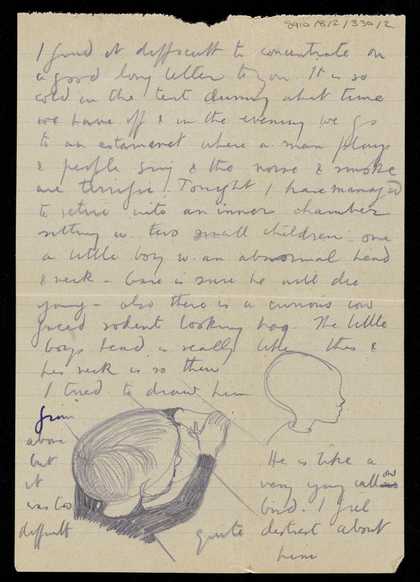 8910/8/2/330/2
I find it difficult to concentrate on
a good long letter to you. It is so
cold in the tent during what time
we have off & in the evening we go
to an estaminet where a man plays
& people sing & the noise & smoke
are terrific. Tonight I have managed
to retire into an inner chamber
sitting w. two small children. one
a little boy w. an abnormal head
& neck - is sure he will die
young - also there is a curious low
bread rodent looking hag. The little
boys head is really like this &
his neck is so thin
I tried to draw him
from
above
but
it
was too
difficult
He is like a
very young callow
bird. I feel
quite distrest about
him